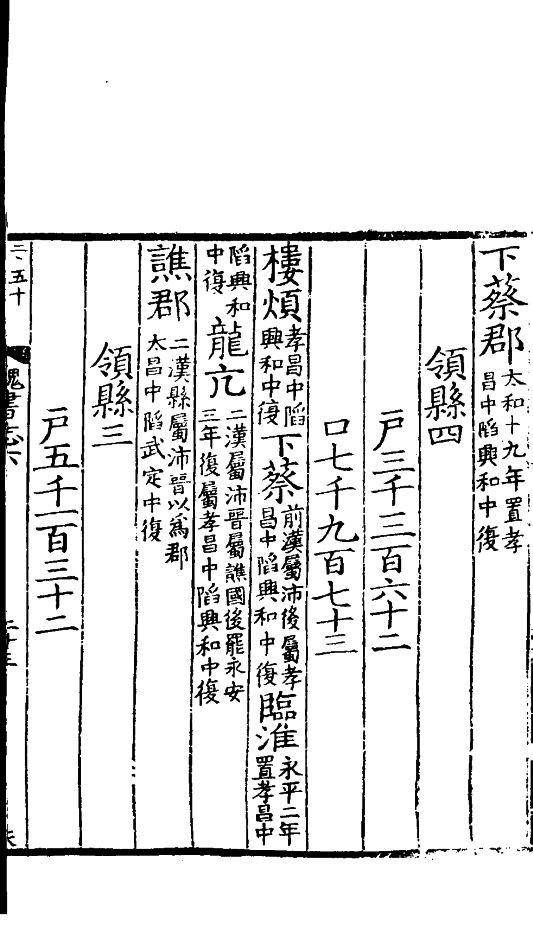 下蔡郡太和十九年置孝昌中䧟興和中復
領縣四
戸三千三百六十二
口七千九百七十三
樓煩孝昌中䧟興和中復下蔡前漢屬沛後屬孝昌中䧟興和中復臨淮永平二年置孝昌中
䧟興和中復龍亢二漢屬沛晉屬譙國後罷永安三年復屬孝昌中䧟興和中復
譙郡二漢縣屬沛晉以爲郡太昌中䧟武定中復
領縣三
戸五千一百三十二
魏書志六